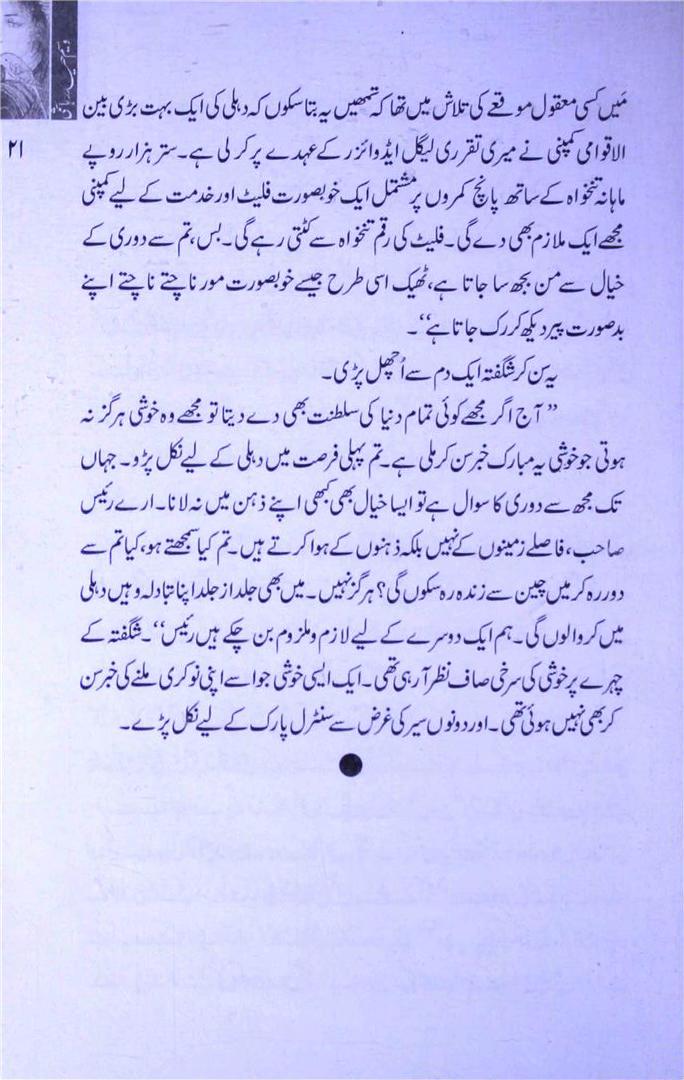 ۲۱
مَیں کسی معقول موقعے کی تلاش میں تھا کہ تمھیں یہ بتا سکوں کہ دہلی کی ایک بہت بڑی بین
الاقوامی کمپنی نے میری تقرری لیگل ایڈوائزر کے عہدے پر کر لی ہے۔ ستر ہزار روپے
ماہانہ تنخواہ کے ساتھ پانچ کمروں پر مشتمل ایک خوبصورت فلیٹ اور خدمت کے لیے کمپنی
مجھے ایک ملازم بھی دے گی۔ فلیٹ کی رقم تنخواہ سے کٹتی رہے گی۔ بس، تم سے دوری کے
خیال سے من بجھ سا جاتا ہے، ٹھیک اسی طرح جیسے خوبصورت مور ناچتے ناچتے اپنے
بدصورت پیر دیکھ کر رک جاتا ہے‘‘۔
یہ سن کر شگفتہ ایک دم سے اُچھل پڑی۔
’’ آج اگر مجھے کوئی تمام دنیا کی سلطنت بھی دے دیتا تو مجھے وہ خوشی ہرگز نہ
ہوتی جو خوشی یہ مبارک خبر سن کر ملی ہے۔ تم پہلی فرصت میں دہلی کے لیے نکل پڑو۔ جہاں
تک مجھ سے دوری کا سوال ہے تو ایسا خیال بھی کبھی اپنے ذہن میں نہ لانا۔ ارے رئیس
صاحب، فاصلے زمینوں کے نہیں بلکہ ذہنوں کے ہوا کرتے ہیں۔ تم کیا سمجھتے ہو، کیا تم سے
دور رہ کر میں چین سے زندہ رہ سکوں گی؟ ہرگز نہیں۔ میں بھی جلد از جلد اپنا تبادلہ وہیں دہلی
میں کروا لوں گی۔ ہم ایک دوسرے کے لیے لازم و ملزوم بن چکے ہیں رئیس‘‘۔ شگفتہ کے
چہرے پر خوشی کی سرخی صاف نظر آ رہی تھی۔ ایک ایسی خوشی جو اسے اپنی نوکری ملنے کی خبر سن
کر بھی نہیں ہوئی تھی۔ اور دونوں سیر کی غرض سے سنٹرل پارک کے لیے نکل پڑے۔